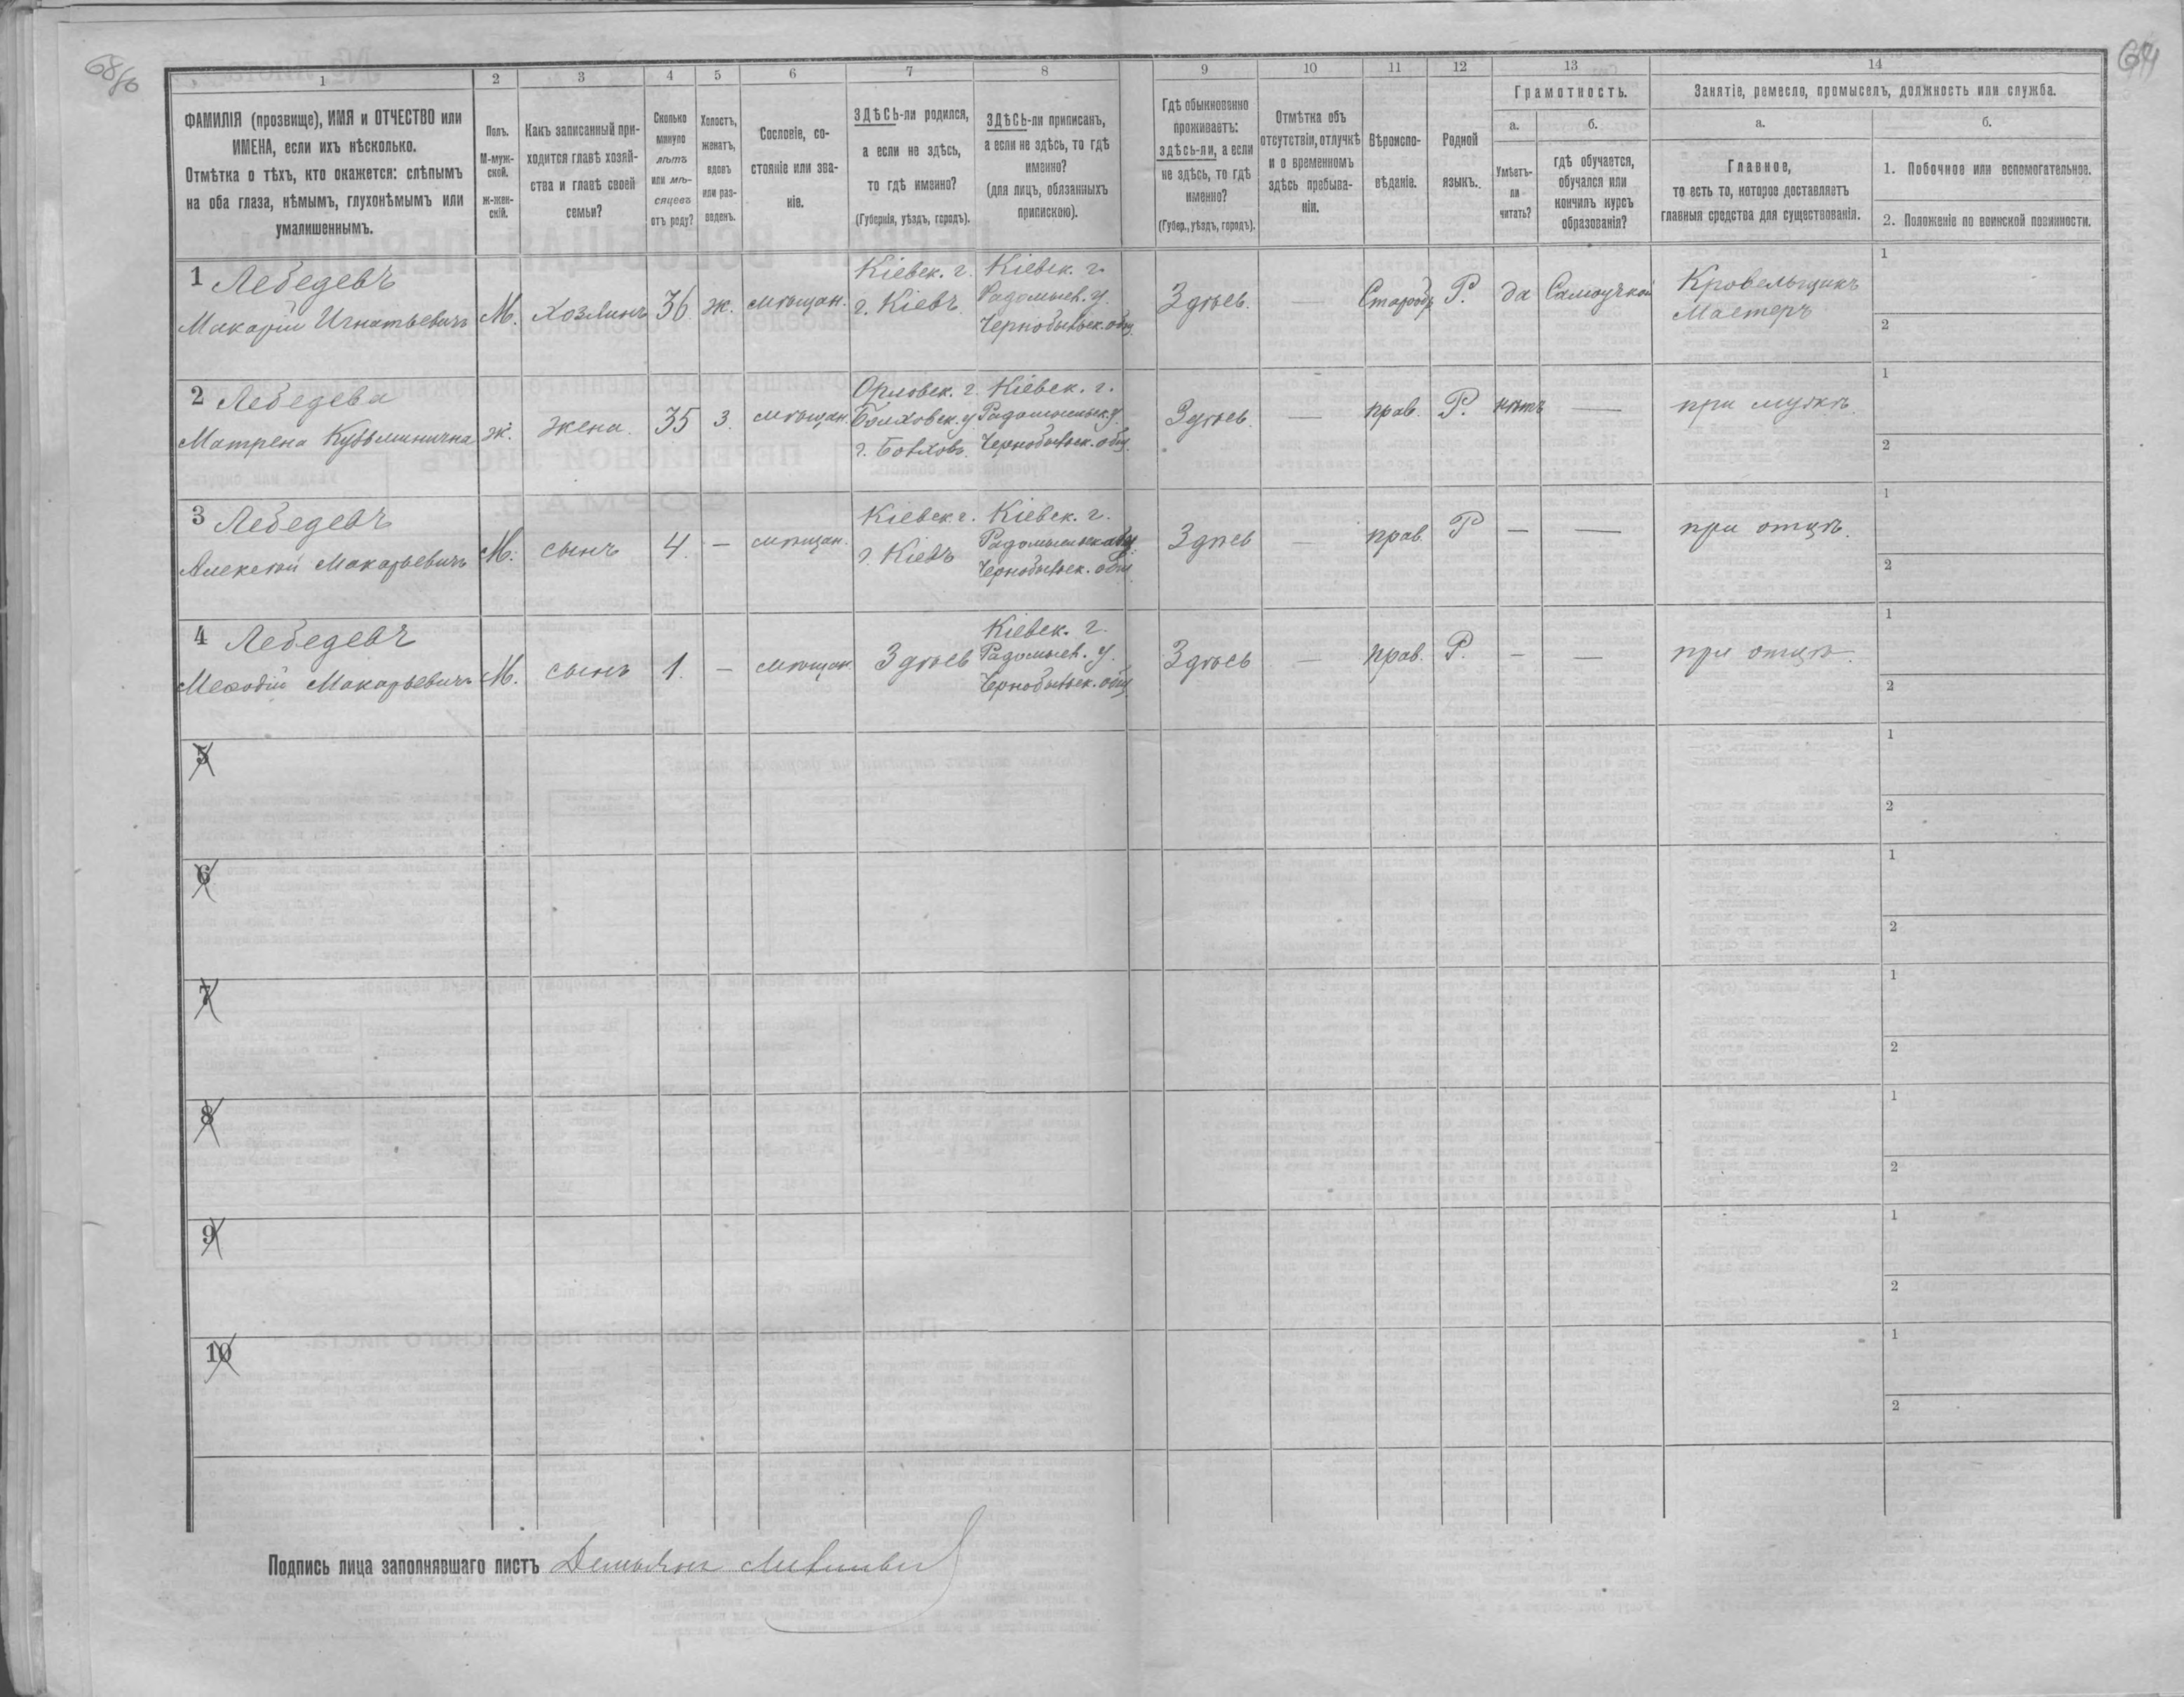 68/6
1 2 3 4 5 6 7 8 9 10 11 12 13 14
ФАМИЛІЯ (прозвище), ИМЯ и ОТЧЕСТВО или
ИМЕНА, если ихъ нѣсколько.
Отмѣтка о тѣхъ, кто окажется: слѣпымъ
на оба глаза, нѣмымъ, глухонѣмымъ или
умалишеннымъ.
Полъ.
М-муж-
ской.
ж-жен-
скій.
Какъ записанный при-
ходится главѣ хозяй-
ства и главѣ своей
семьи?
Сколько
минуло
лѣтъ
или мѣ-
сяцевъ
отъ роду?
Холостъ,
женатъ,
вдовъ
или раз-
веденъ.
Сословіе, со-
стояніе или зва-
ніе.
ЗДѢСЬ-ли родился,
а если не здѣсь,
то гдѣ именно?
(Губернія, уѣздъ, городъ).
ЗДѢСЬ-ли приписанъ,
а если не здѣсь, то гдѣ
именно?
(для лицъ, обязанныхъ
припискою).
Гдѣ обыкновенно
проживаетъ:
здѣсь-ли, а если
не здѣсь, то гдѣ
именно?
(Губер., уѣздъ, городъ).
Отмѣтка объ
отсутствіи, отлучкѣ
и о временномъ
здѣсь пребыва-
ніи.
Вѣроиспо-
вѣданіе.
Родной
языкъ.
Грамотность.
а.
Умѣетъ-
ли
читать?
б.
гдѣ обучается,
обучался или
кончилъ курсъ
образованія?
Занятіе, ремесло, промыселъ, должность или служба.
а.
Главное,
то есть то, которое доставляетъ
главныя средства для существованія.
б.
1. Побочное или вспомогательное.
2. Положеніе по воинской повинности.
1 Лебедевъ
Макарій Игнатьевичъ
М.
хозяинъ
36
ж.
мѣщан.
Кіевск. г.
г. Кіевъ.
Кіевск. г.
Радомысл. у.
Чернобыльск. общ.
Здѣсь.
—
Старообр
Р.
да
Самоучкой
Кровельщикъ
Мастеръ
1
2
2 Лебедева
Матрена Кузьминична
ж.
жена.
35
з.
мѣщан.
Орловск. г.
Болховск. у
г. Болховъ.
Кіевск. г.
Радомысльск. у.
Чернобыльск. общ.
Здѣсь.
—
прав.
Р.
нѣтъ
—
при мужѣ.
1
2
3 Лебедевъ
Алексѣй Макарьевичъ
М.
сынъ
4.
—
мѣщан.
Кіевск. г.
г. Кіевъ
Кіевск. г.
Чернобыльск. общ
Здѣсь
—
прав.
Р
—
—
при отцѣ.
1
2
4 Лебедевъ
Меѳодій Макарьевичъ
М.
сынъ
1.
—
мѣщан.
Здѣсь
Кіевск. г.
Радомысл. у.
Чернобыльск. общ.
Здѣсь
—
прав.
Р.
—
—
при отцѣ.
1
2
5
1
2
6
1
2
7
1
2
8
1
2
9
1
2
10
1
2
Подпись лица заполнявшаго листъ